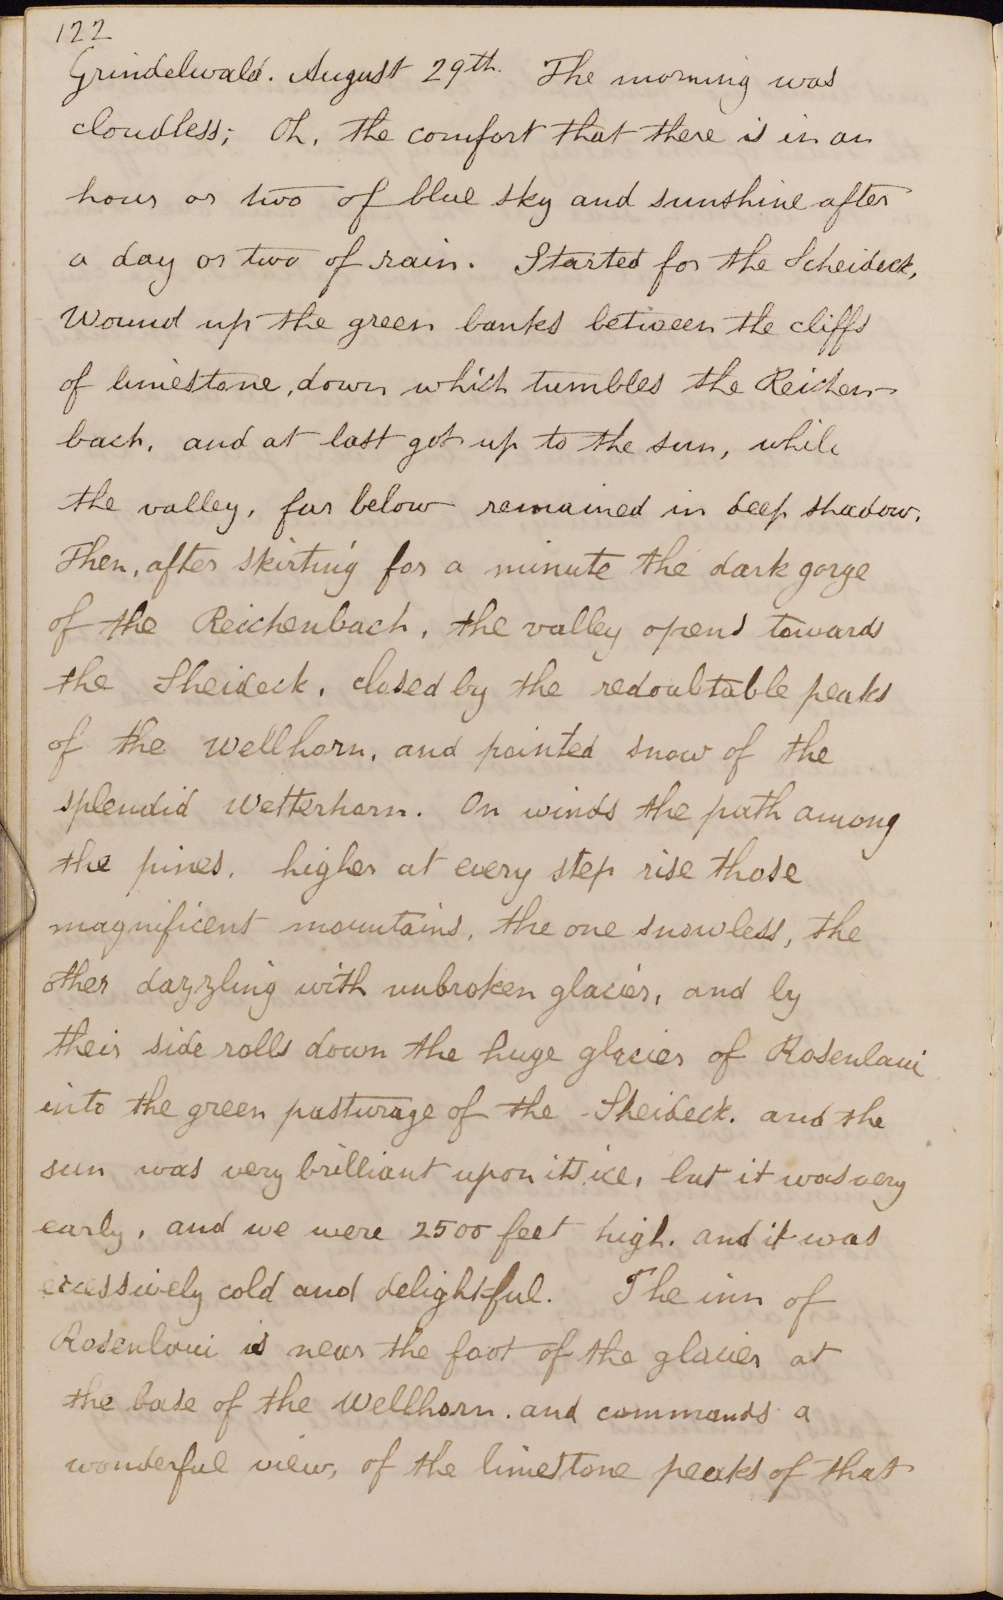 122
Grindelwald. August 29th. The morning was
cloudless; Oh, the comfort that there is in an
hour or two of blue sky and sunshine after
a day or two of rain. Started for the Scheideck,
Wound up the green banks between the cliffs
of limestone, down which tumbles the Reichen-
bach, and at last got up to the sun, while
the valley, far below remained in deep shadow.
Then, after skirting for a minute the dark gorge
of the Reichenbach, the valley opens towards
the Sheideck, closed by the redoubtable peaks
of the Wellhorn, and pointed snow of the
splendid Wetterhorn. On winds the path among
the pines, higher at every step rise those
magnificent mountains, the one snowless, the
other dazzling with unbroken glacier, and by
their side rolls down the huge glacier of Rosenlaui
into the green pasturage of the Sheideck. and the
sun was very brilliant upon its ice, but it was very
early, and we were 2500 feet high. and it was
excessively cold and delightful. The inn of
Rosenlaui is near the foot of the glacier at
the base of the Wellhorn. and commands a
wonderful view, of the limestone peaks of that